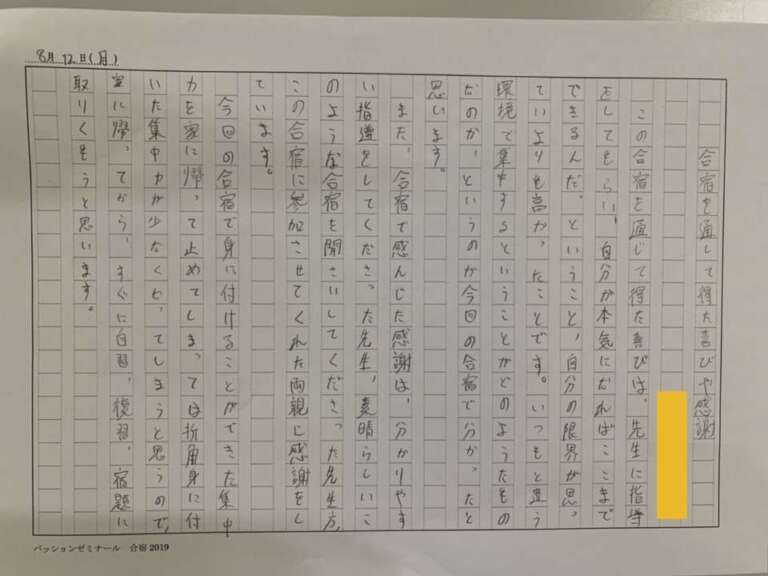 8月12日(月)
合宿を通して得た喜びや感謝
この合宿を通じて得た喜びは、先生に指導
をしてもらい、自分が本気になればここまで
できるんだ。ということ、自分の限界が思っ
ていよりも高かったことです。いつもと違う
環境で集中するということがどのようなもの
なのか、というのが今回の合宿で分かったと
思います。
また、合宿で感んじた感謝は、分かりやす
い指導をしてくださった先生、素晴らしいこ
のような合宿を開さいしてくださった先生方、
この合宿に参加させてくれた両親に感謝をし
ています。
今回の合宿で身に付けることができた集中
力を家に帰って止めてしまっては折角身に付
いた集中力が少なくなってしまうと思うので、
家に帰ってから、すぐに自習、復習、宿題に
取りくもうと思います。
パッションゼミナール 合宿2019